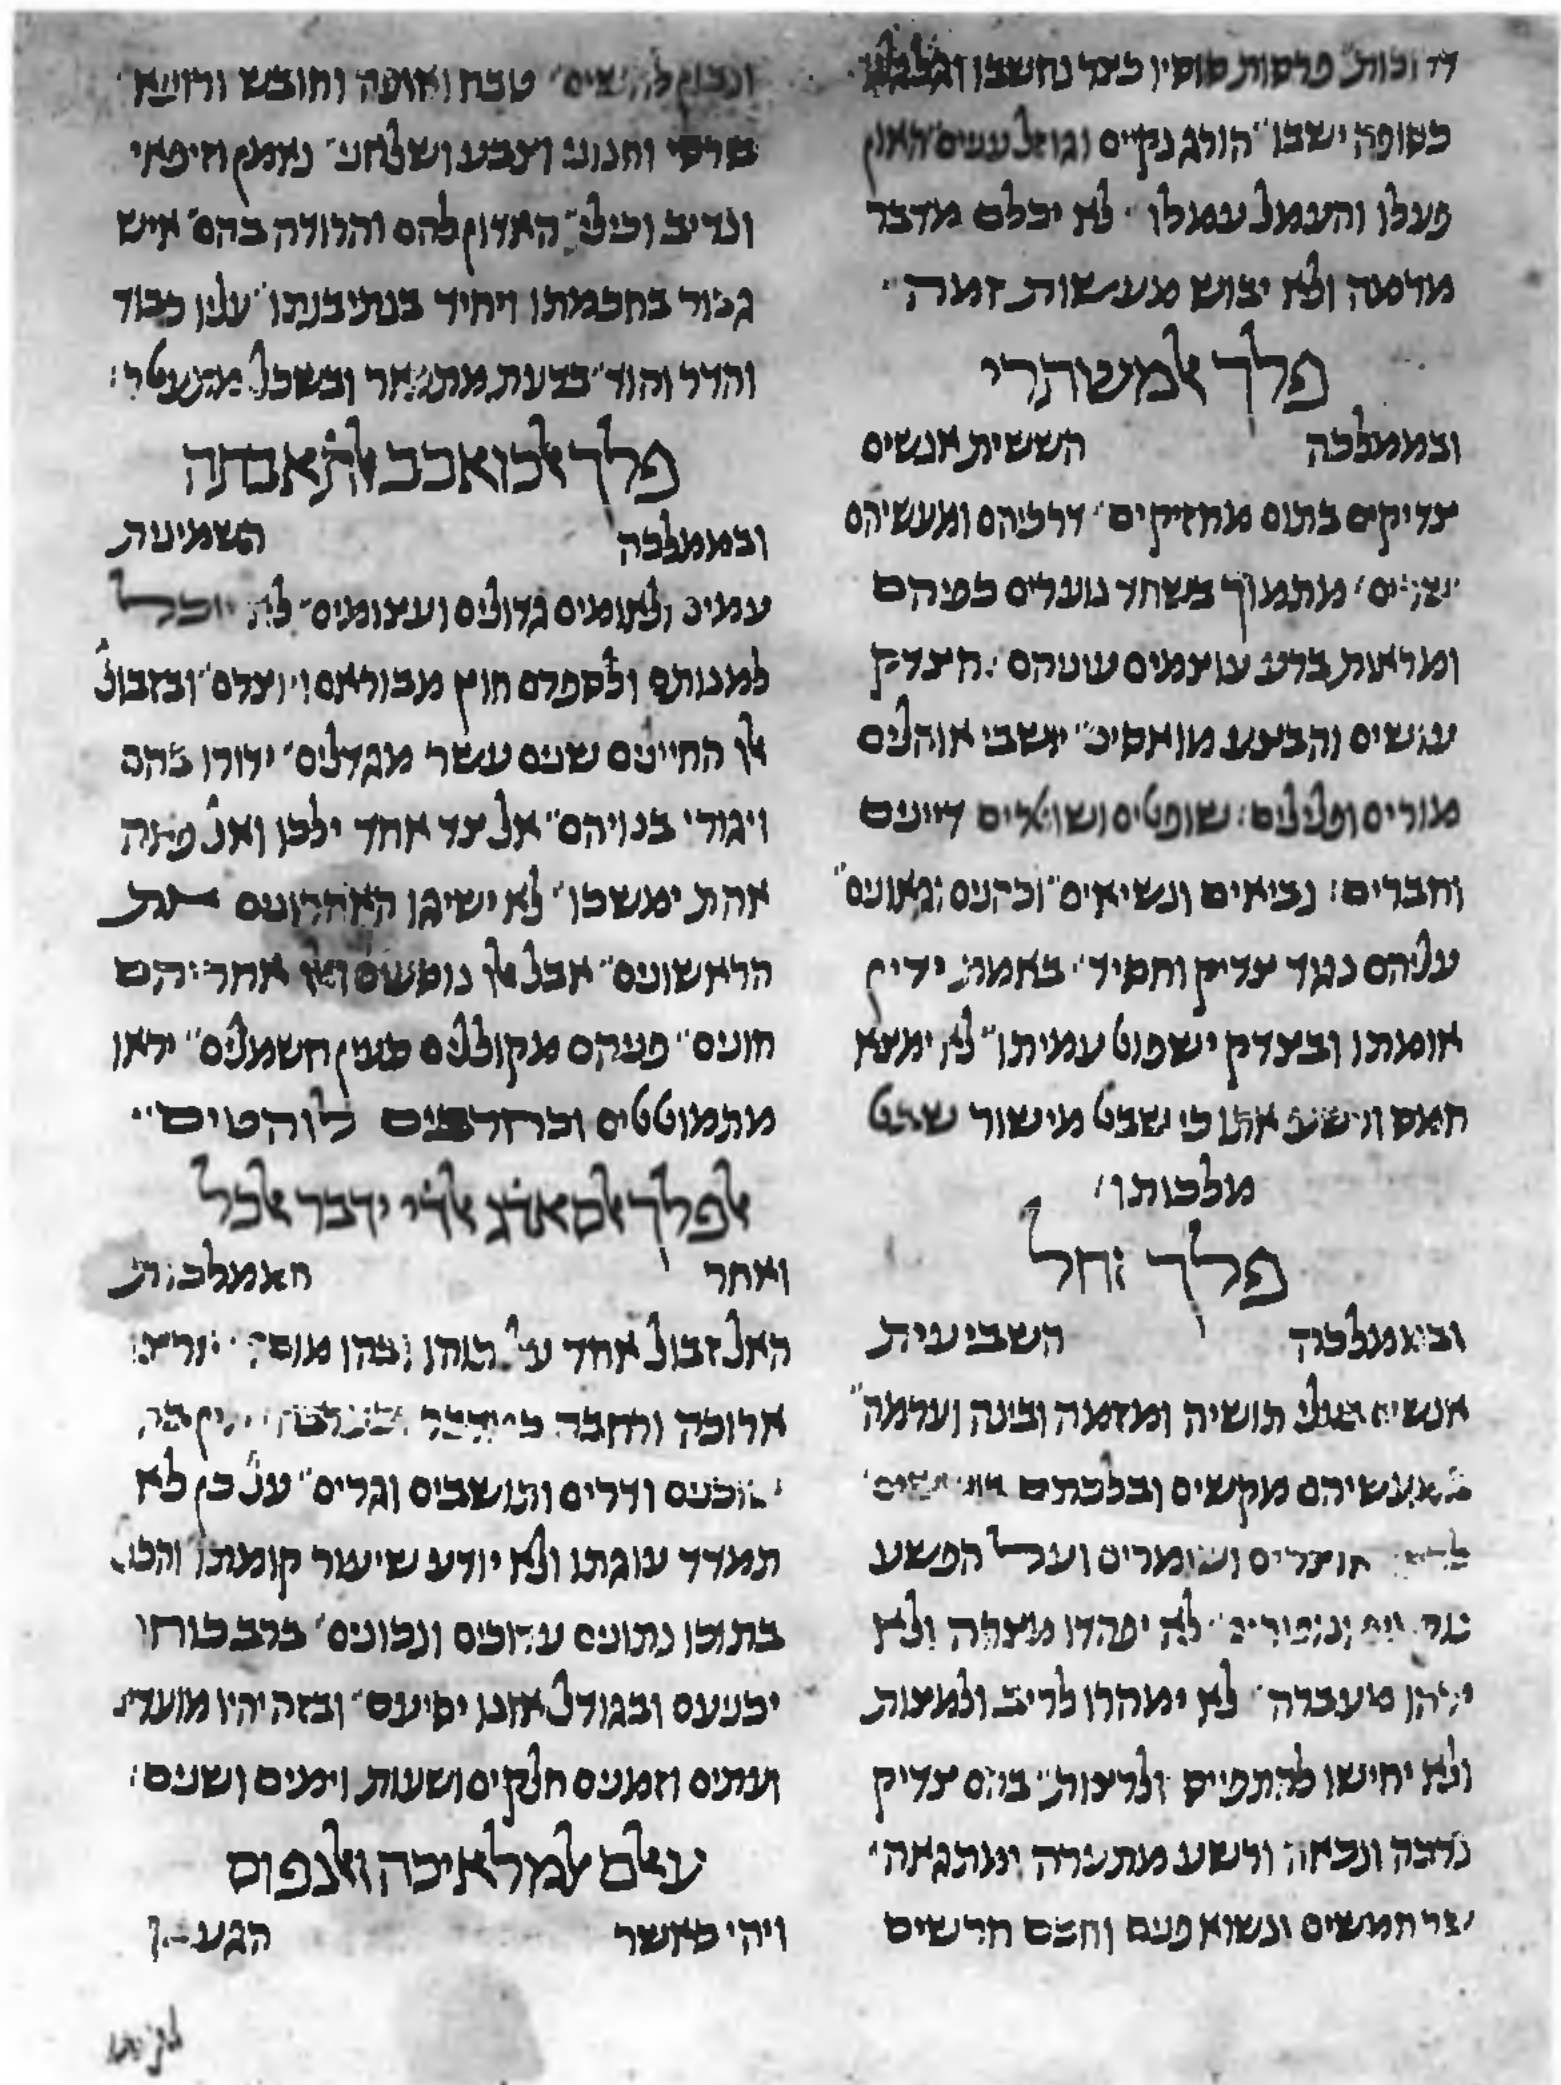 פרסות סוסיו כצר נחשבו וגלגליו
כסופה ישבו הורג נקיים וגוזל עניים האון
פעלו והעמל עמלו לא יכלם מדבר
מרמה ולא יבוש מעשות זמה
פלך אלמשתרי
ובממלכה הששית אנשים
צדיקים בתום מחזיקים דרכיהם ומעשיהם
מתמוך בשחד נוערים כפיהם
ומראות ברע עוצמים עיניהם הצדק
עושים והבצע מואסים יושבי אוהלים
מורים ופלילים שופטים ושוטרים דיינים
וחברים נביאים ונשיאים וכהנים וגאונים
עליהם נגיד צדיק וחסיד באמת ידין
אומתו ובצדק ישפוט עמיתו לא ימצא
חמס ורשע אתו כי שבט מישור שבט
מלכותו
פלך זחל
ובממלכה השביעית
אנשים בעלי תושיה ומזמה ובינה וערמה
במעשיהם מקשים ובלכתם
נוצרים ושומרים ועל הפשע
לא יפחדו מצרה ולא
מעברה לא ימהרו לריב ולמצות
ולא יחישו להתפייס ולרצות בהם צדיק
נדכה ונכאה ורשע מתערה ומתגאה
שר חמשים ונשוא פנים וחכם חרשים
ונבון לחשים טבח ואופה וחובש ורופא
בורסי וחנוני וצבע ושלחני
ונדיב וכילי האדון להם והרודה בהם איש
גבור בחכמתו ויחיד בנתיבתו עליו כבוד
והדר והוד בדעת מתגאר ובשכל מתעטר
פלך אלכואכב אלתאבתה
ובממלכה השמינית
עמים ולאומים גדולים ועצומים לא יוכל
למנותם ולספרם חוץ מבוראם ויוצרם ובזבול
אלו החיינים שנים עשר מגדלים ידורו בהם
ויגורו בנויהם אל צד אחד ילכו ואל פאה
אחת ימשכו לא ישיגו האחרונים את
הראשונים אבל אלו נוסעים ואלו אחריהם
חונים פניהם מקוללים כעין חשמלים יראו
מתמוטטים וכחרבים לוהטים
אלפלך אלסאדג אלדי ידבר אלכל
ואחר הממלכות
האל זבול אחד
ארוכה ורחבה
שוכנים ודרים ותושבים וגרים על כן לא
תמדד עוגתו ולא יודע שיעור קומתו והכל
בתוכו נתונים ערוכים ונכונים ברב כוחו
יכניעם ובגודל אונו יסיעם ובזה יהיו מועדים
ועתים וזמנים חלקים ושעות וימים ושנים
עאלם אלמלאיכה ואלנפוס
ויהי כאשר